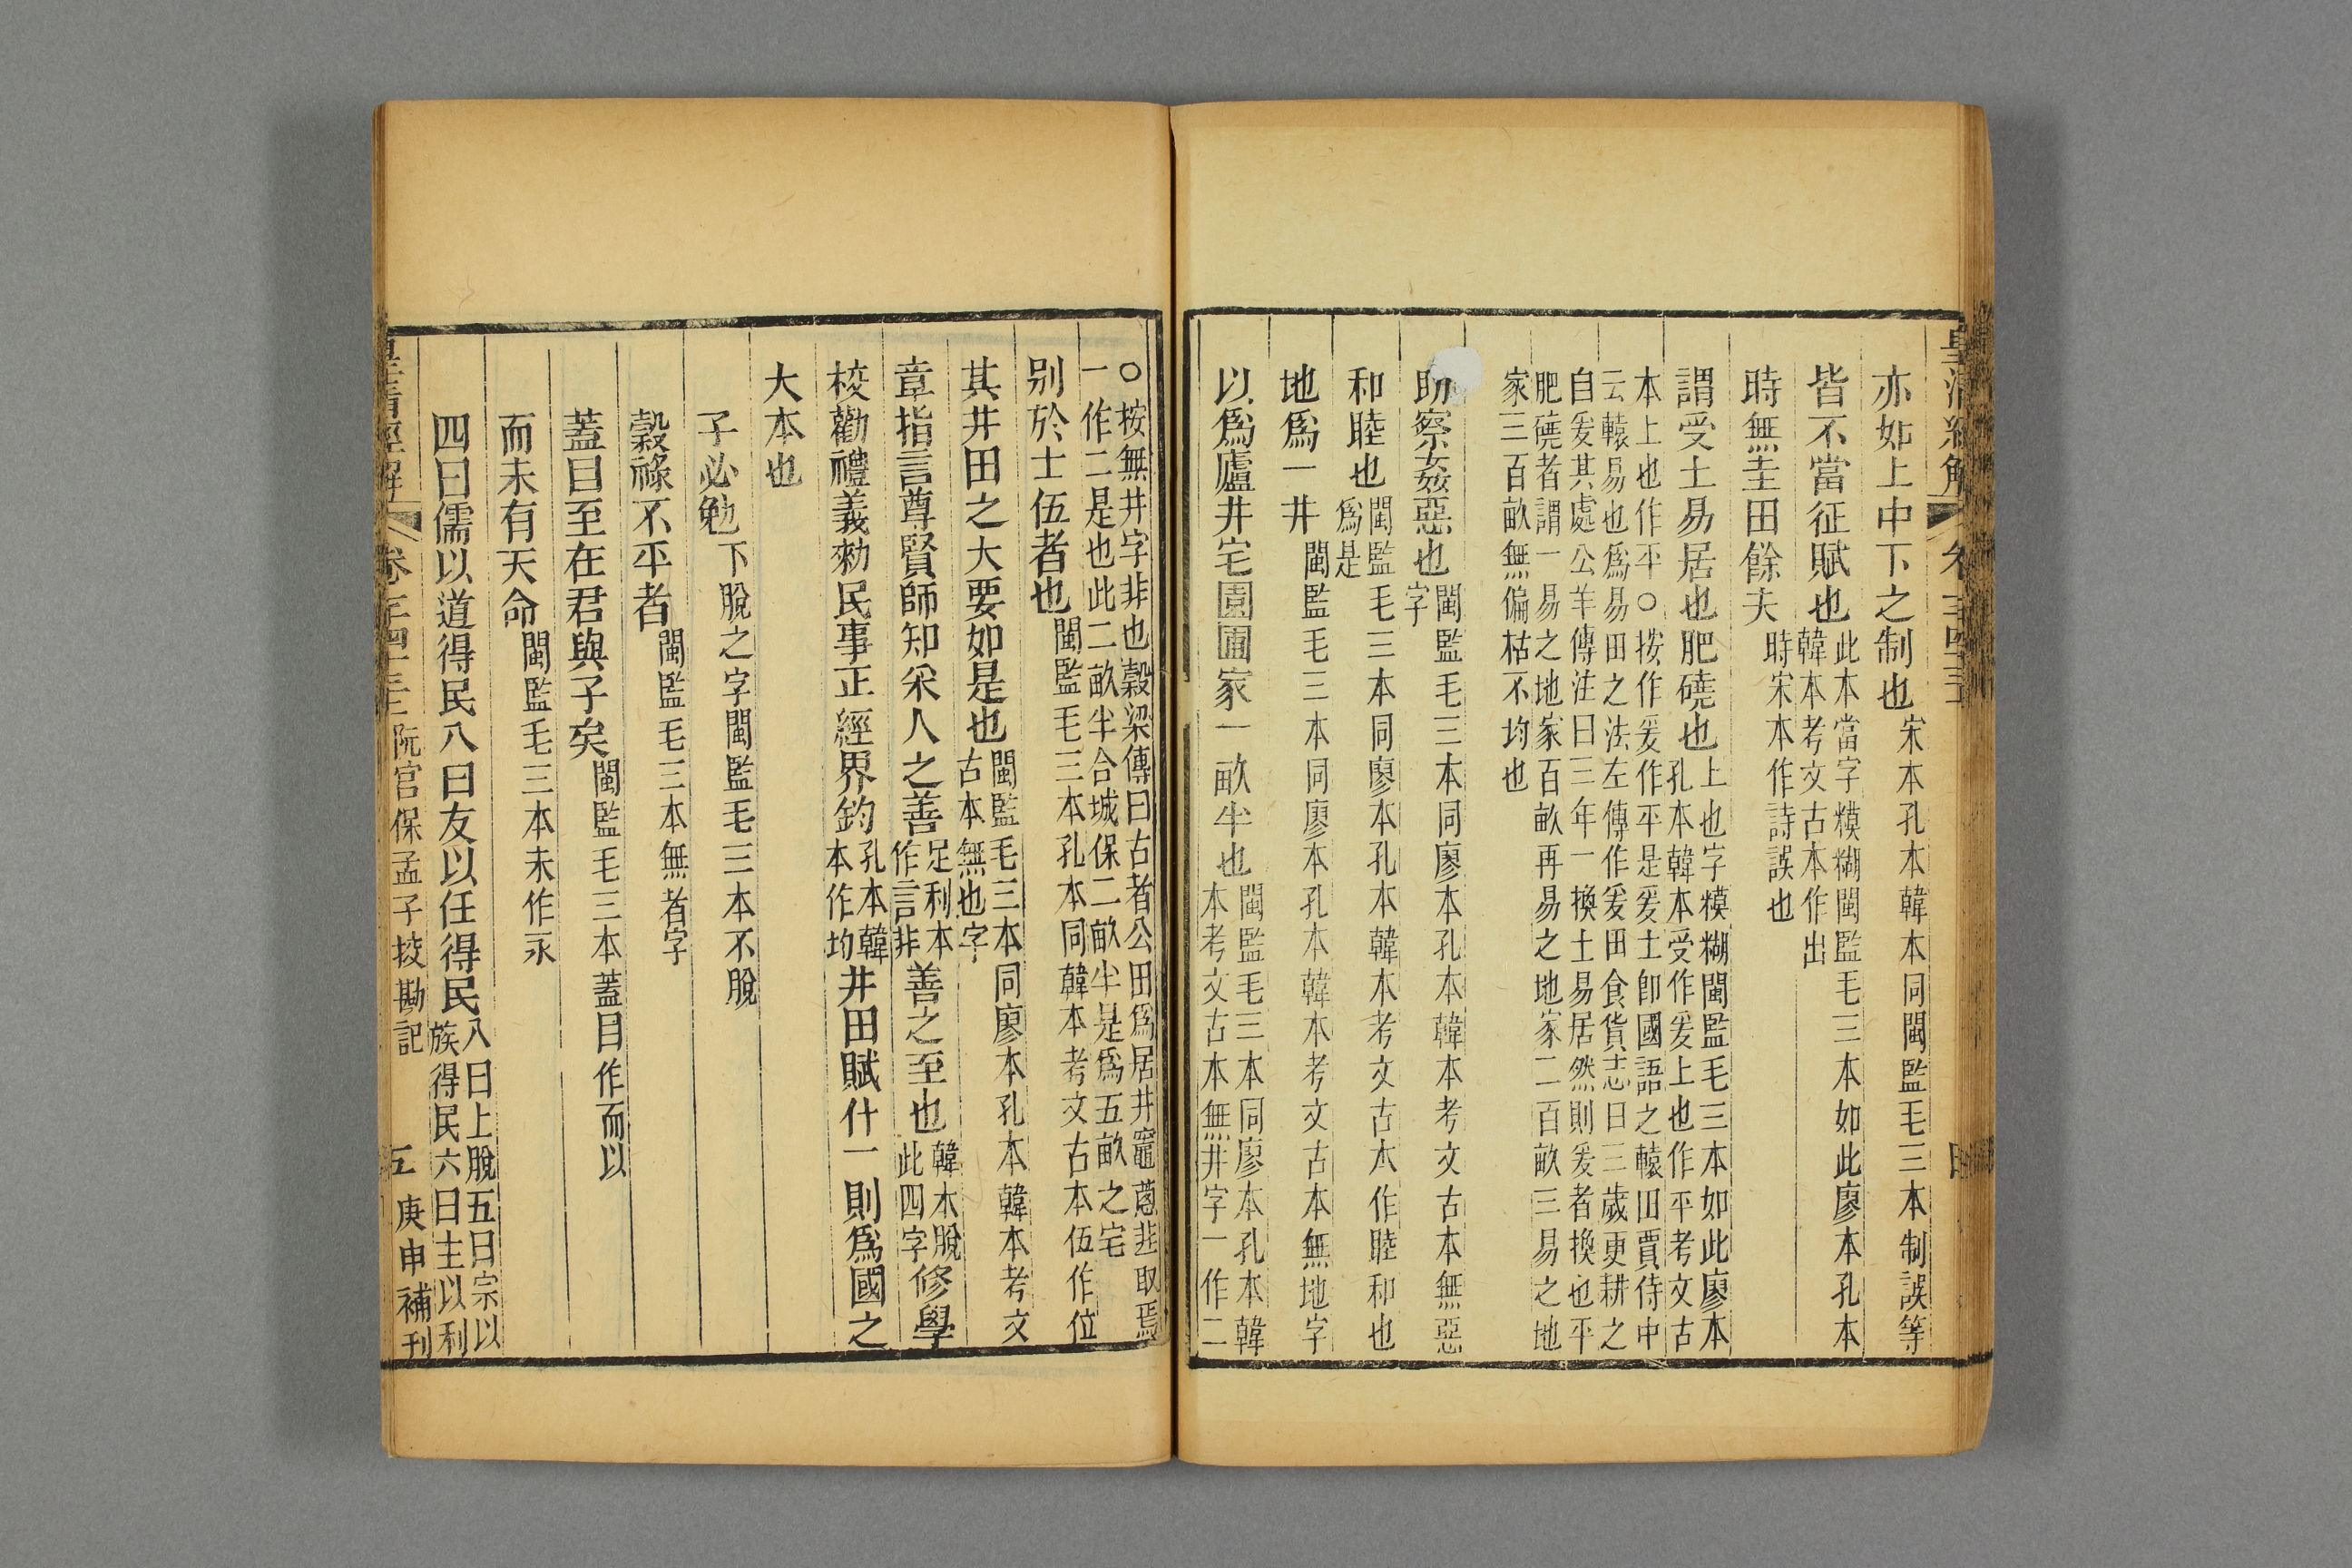 亦如上中下之制也宋本孔本韓本同閩監毛三本制誤等
皆不當征賦也此本當字糢糊閩監毛三本如此廖本孔本
韓本考文古本作出
時無圭田餘夫時宋本作詩誤也
謂受土易居也肥磽也上也字糢糊閩監毛三本如此廖本
孔本韓本受作爰上也作平考文古
本上也作平○按作爰作平是爰土卽國語之轅田賈侍中
云轅易也爲易田之法左傳作爰田食貨志曰三歲更耕之
自爰其處公羊傳注曰三年一換土易居然則爰者換也平
肥磽者謂一易之地家百畝再易之地家二百畝三易之地
家三百畝無偏枯不均也
助察姦惡也閩監毛三本同廖本孔本韓本考文古本無惡
字
和睦也閩監毛三本同廖本孔本韓本考文古本作睦和也
爲是
地爲一井閩監毛三本同廖本孔本韓本考文古本無地字
以爲廬井宅園圃家一畝半也閩監毛三本同廖本孔本韓
本考文古本無井字一作二
○按無井字非也穀梁傳曰古者公田爲居井竈蔥韭取焉
一作二是也此二畝半合城保二畝半是爲五畝之宅
别於士伍者也閩監毛三本孔本同韓本考文古本伍作位
其井田之大要如是也閩監毛三本同廖本孔本韓本考文
古本無也字
章指言尊賢師知采人之善足利本
作言非善之至也韓本脫
此四字修學
校勸禮義勑民事正經界鈞孔本韓
本作均井田賦什一則爲國之
大本也
子必勉下脫之字閩監毛三本不脫
穀祿不平者閩監毛三本無者字
蓋目至在君與子矣閩監毛三本蓋目作而以
而未有天命閩監毛三本未作永
四曰儒以道得民八曰友以任得民八曰上脫五曰宗以
族得民六曰主以利
阮宫保孟子挍勘記
五
庚申補刊